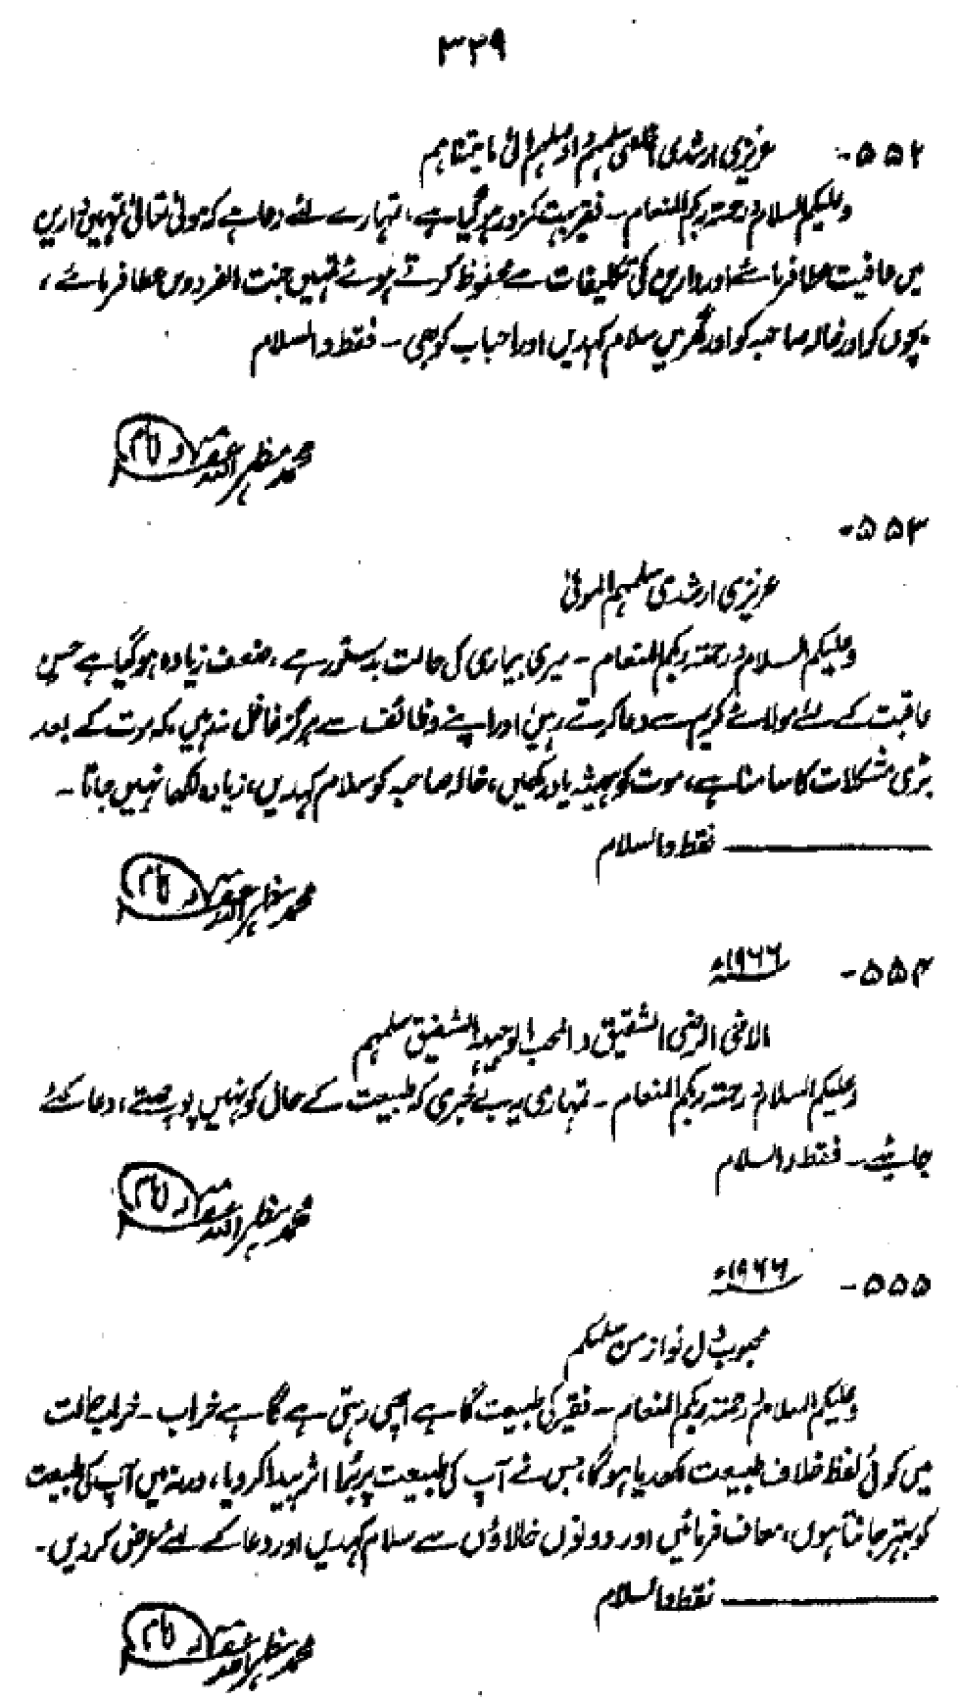 ۳۳۹
۵۵۲-
عزیزی ارشدی سلمہم الی ما یتمناہم
وعلیکم السلام ورحمۃ ربکم المنعام۔ فقیر بہت کمزور ہوگیا ہے، تمہارے لئے دعا ہے کہ مولیٰ تعالیٰ تمہیں دارین
میں عافیت عطا فرمائے اور دارین کی تکلیفات سے محفوظ کرتے ہوئے تمہیں جنت الفردوس عطا فرمائے،
بچوں کو اور خالہ صاحبہ کو اور گھر میں سلام کہدیں اور احباب کو بھی۔ فقط والسلام
محمد مظہر اللہ
۵۵۳-
عزیزی ارشدی سلمہم المولیٰ
وعلیکم السلام ورحمۃ ربکم المنعام۔ میری بیماری کی حالت بدستور ہے، ضعف زیادہ ہوگیا ہے حسن
عاقبت کے لئے مولائے کریم سے دعا کرتے رہیں اور اپنے وظائف سے ہرگز غافل نہ رہیں، کہ موت کے بعد
بڑی مشکلات کا سامنا ہے، موت کو ہمیشہ یاد رکھیں، خالہ صاحبہ کو سلام کہدیں، زیادہ لکھا نہیں جاتا۔
فقط والسلام
محمد مظہر اللہ
۵۵۴- ۱۹۶۶ء
الاخی الرضی الشقیق والمحب الوجیہ الشفیق سلمہم
وعلیکم السلام ورحمۃ ربکم المنعام۔ تمہاری یہ بے خبری کہ طبیعت کے حال کو نہیں پوچھتے، دعا کئے
جائیے۔ فقط والسلام
محمد مظہر اللہ
۵۵۵- ۱۹۶۶ء
محبوب دل نواز من سلمکم
وعلیکم السلام ورحمۃ ربکم المنعام۔ فقیر کی طبیعت گاہے اچھی رہتی ہے گاہے خراب۔ خراب حالت
میں کوئی لفظ خلاف طبیعت لکھدیا ہوگا، جس نے آپ کی طبیعت پر بُرا اثر پیدا کردیا، ورنہ میں آپ کی طبیعت
کو بہتر جانتا ہوں، معاف فرمائیں اور دونوں خالاؤں سے سلام کہدیں اور دعا کے لئے عرض کردیں۔
فقط والسلام
محمد مظہر اللہ